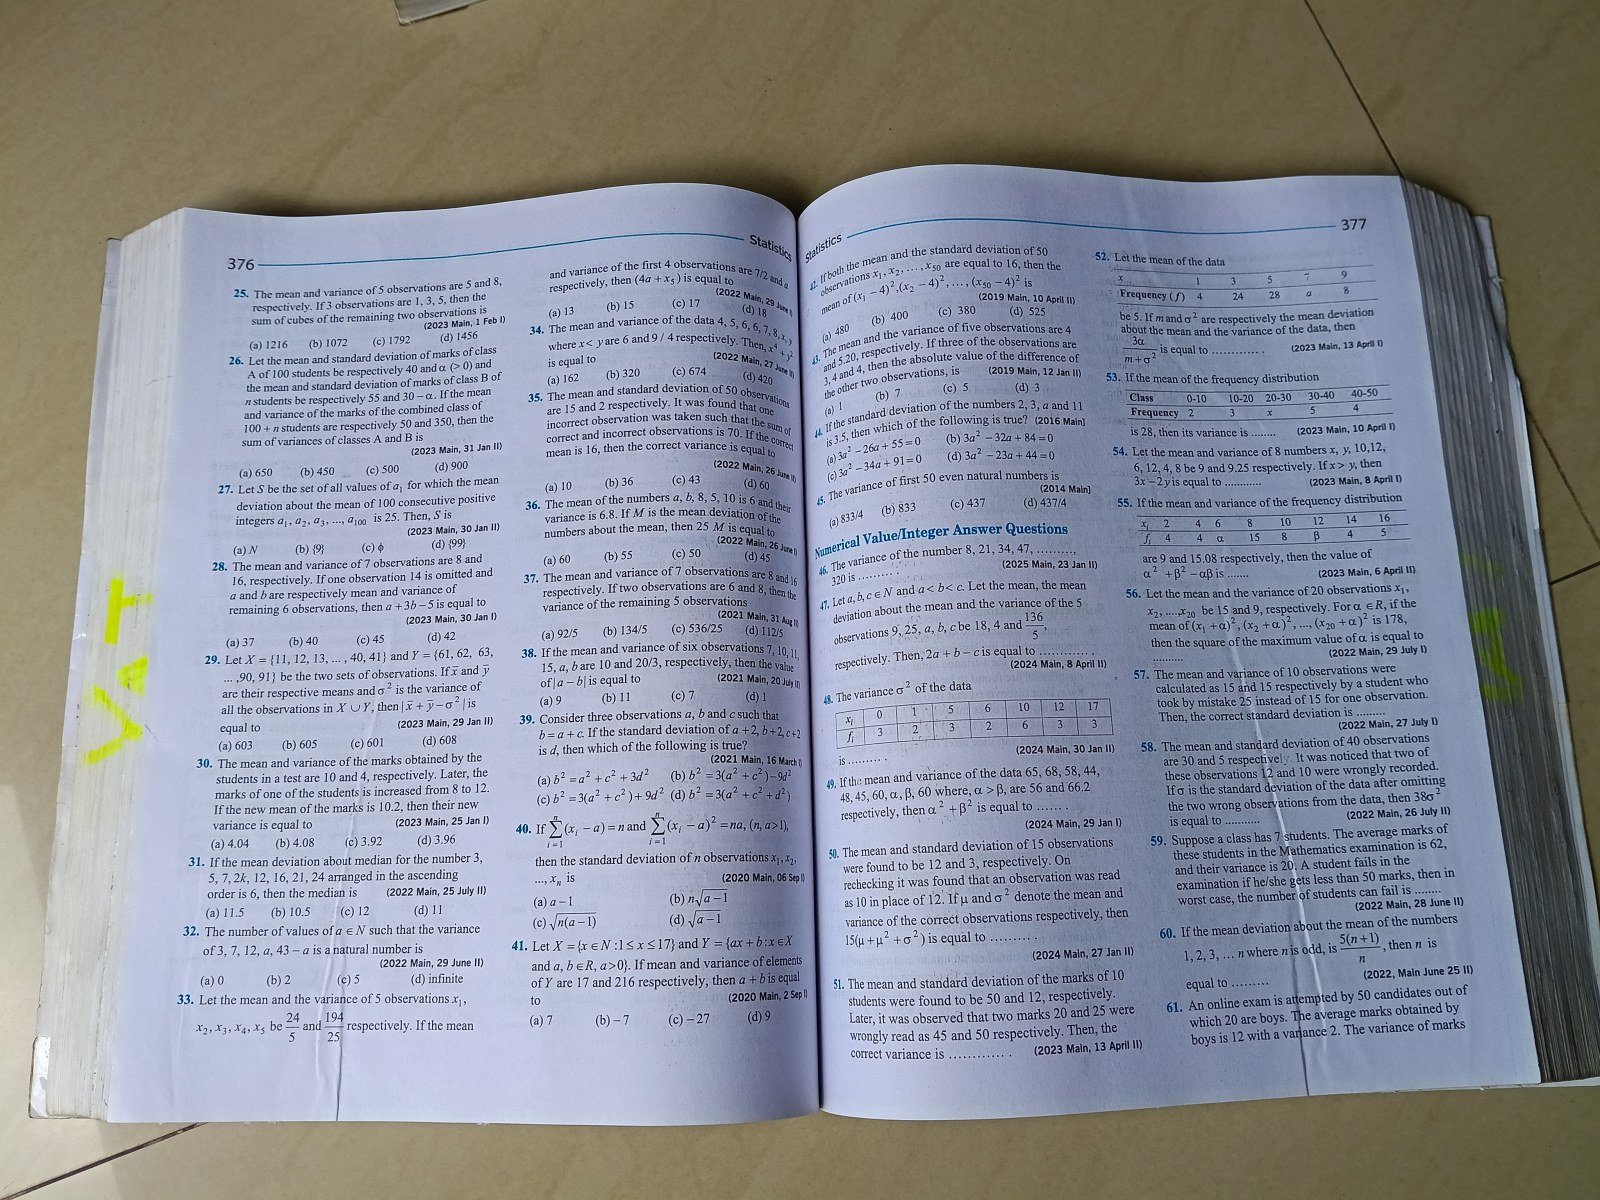 376
Statistics
25. The mean and variance of 5 observations are 5 and 8,
respectively. If 3 observations are 1, 3, 5, then the
sum of cubes of the remaining two observations is
(2023 Main, 1 Feb I)
(a) 1216 (b) 1072 (c) 1792 (d) 1456
26. Let the mean and standard deviation of marks of class
A of 100 students be respectively 40 and α (> 0) and
the mean and standard deviation of marks of class B of
n students be respectively 55 and 30 – α. If the mean
and variance of the marks of the combined class of
100 + n students are respectively 50 and 350, then the
sum of variances of classes A and B is
(2023 Main, 31 Jan II)
(a) 650 (b) 450 (c) 500 (d) 900
27. Let S be the set of all values of a₁ for which the mean
deviation about the mean of 100 consecutive positive
integers a₁, a₂, a₃, ..., a₁₀₀ is 25. Then, S is
(2023 Main, 30 Jan II)
(a) N (b) {9} (c) ϕ (d) {99}
28. The mean and variance of 7 observations are 8 and
16, respectively. If one observation 14 is omitted and
a and b are respectively mean and variance of
remaining 6 observations, then a + 3b – 5 is equal to
(2023 Main, 30 Jan I)
(a) 37 (b) 40 (c) 45 (d) 42
29. Let X = {11, 12, 13, ... , 40, 41} and Y = {61, 62, 63,
... ,90, 91} be the two sets of observations. If x̄ and ȳ
are their respective means and σ² is the variance of
all the observations in X ∪ Y, then | x̄ + ȳ – σ² | is
equal to (2023 Main, 29 Jan II)
(a) 603 (b) 605 (c) 601 (d) 608
30. The mean and variance of the marks obtained by the
students in a test are 10 and 4, respectively. Later, the
marks of one of the students is increased from 8 to 12.
If the new mean of the marks is 10.2, then their new
variance is equal to (2023 Main, 25 Jan I)
(a) 4.04 (b) 4.08 (c) 3.92 (d) 3.96
31. If the mean deviation about median for the number 3,
5, 7, 2k, 12, 16, 21, 24 arranged in the ascending
order is 6, then the median is (2022 Main, 25 July II)
(a) 11.5 (b) 10.5 (c) 12 (d) 11
32. The number of values of a ∈ N such that the variance
of 3, 7, 12, a, 43 – a is a natural number is
(2022 Main, 29 June II)
(a) 0 (b) 2 (c) 5 (d) infinite
33. Let the mean and the variance of 5 observations x₁,
x₂, x₃, x₄, x₅ be 24/5 and 194/25 respectively. If the mean
and variance of the first 4 observations are 7/2 and a
respectively, then (4a + x₅) is equal to
(2022 Main, 29 June I)
(a) 13 (b) 15 (c) 17 (d) 18
34. The mean and variance of the data 4, 5, 6, 6, 7, 8, x, y
where x < y are 6 and 9 / 4 respectively. Then, x⁴ + y²
is equal to (2022 Main, 27 June II)
(a) 162 (b) 320 (c) 674 (d) 420
35. The mean and standard deviation of 50 observations
are 15 and 2 respectively. It was found that one
incorrect observation was taken such that the sum of
correct and incorrect observations is 70. If the correct
mean is 16, then the correct variance is equal to
(2022 Main, 26 June II)
(a) 10 (b) 36 (c) 43 (d) 60
36. The mean of the numbers a, b, 8, 5, 10 is 6 and their
variance is 6.8. If M is the mean deviation of the
numbers about the mean, then 25 M is equal to
(2022 Main, 26 June I)
(a) 60 (b) 55 (c) 50 (d) 45
37. The mean and variance of 7 observations are 8 and 16
respectively. If two observations are 6 and 8, then the
variance of the remaining 5 observations
(2021 Main, 31 Aug II)
(a) 92/5 (b) 134/5 (c) 536/25 (d) 112/5
38. If the mean and variance of six observations 7, 10, 11,
15, a, b are 10 and 20/3, respectively, then the value
of | a – b| is equal to (2021 Main, 20 July I)
(a) 9 (b) 11 (c) 7 (d) 1
39. Consider three observations a, b and c such that
b = a + c. If the standard deviation of a + 2, b + 2, c + 2
is d, then which of the following is true?
(2021 Main, 16 March I)
(a) b² = a² + c² + 3d² (b) b² = 3(a² + c²) – 9d²
(c) b² = 3(a² + c²) + 9d² (d) b² = 3(a² + c² + d²)
40. If ∑ᵢ₌₁ⁿ (xᵢ – a) = n and ∑ᵢ₌₁ⁿ (xᵢ – a)² = na, (n, a > 1),
then the standard deviation of n observations x₁, x₂,
..., xₙ is (2020 Main, 06 Sep I)
(a) a – 1 (b) n√(a – 1)
(c) √(n(a – 1)) (d) √(a – 1)
41. Let X = {x ∈ N : 1 ≤ x ≤ 17} and Y = {ax + b : x ∈ X
and a, b ∈ R, a > 0}. If mean and variance of elements
of Y are 17 and 216 respectively, then a + b is equal
to (2020 Main, 2 Sep I)
(a) 7 (b) – 7 (c) – 27 (d) 9
Statistics
377
42. If both the mean and the standard deviation of 50
observations x₁, x₂, ..., x₅₀ are equal to 16, then the
mean of (x₁ – 4)², (x₂ – 4)², ..., (x₅₀ – 4)² is
(2019 Main, 10 April II)
(a) 480 (b) 400 (c) 380 (d) 525
43. The mean and the variance of five observations are 4
and 5.20, respectively. If three of the observations are
3, 4 and 4, then the absolute value of the difference of
the other two observations, is (2019 Main, 12 Jan II)
(a) 1 (b) 7 (c) 5 (d) 3
44. If the standard deviation of the numbers 2, 3, a and 11
is 3.5, then which of the following is true? (2016 Main)
(a) 3a² – 26a + 55 = 0 (b) 3a² – 32a + 84 = 0
(c) 3a² – 34a + 91 = 0 (d) 3a² – 23a + 44 = 0
45. The variance of first 50 even natural numbers is
(2014 Main)
(a) 833/4 (b) 833 (c) 437 (d) 437/4
Numerical Value/Integer Answer Questions
46. The variance of the number 8, 21, 34, 47, ..........,
320 is .......... (2025 Main, 23 Jan II)
47. Let a, b, c ∈ N and a < b < c. Let the mean, the mean
deviation about the mean and the variance of the 5
observations 9, 25, a, b, c be 18, 4 and 136/5,
respectively. Then, 2a + b – c is equal to ............
(2024 Main, 8 April II)
48. The variance σ² of the data
xᵢ 0 1 5 6 10 12 17
fᵢ 3 2 3 2 6 3 3
(2024 Main, 30 Jan II)
is ..........
49. If the mean and variance of the data 65, 68, 58, 44,
48, 45, 60, α, β, 60 where, α > β, are 56 and 66.2
respectively, then α² + β² is equal to .......
(2024 Main, 29 Jan I)
50. The mean and standard deviation of 15 observations
were found to be 12 and 3, respectively. On
rechecking it was found that an observation was read
as 10 in place of 12. If μ and σ² denote the mean and
variance of the correct observations respectively, then
15(μ + μ² + σ²) is equal to ..........
(2024 Main, 27 Jan II)
51. The mean and standard deviation of the marks of 10
students were found to be 50 and 12, respectively.
Later, it was observed that two marks 20 and 25 were
wrongly read as 45 and 50 respectively. Then, the
correct variance is ............. (2023 Main, 13 April II)
52. Let the mean of the data
x 1 3 5 7 9
Frequency (f) 4 24 28 α 8
be 5. If m and σ² are respectively the mean deviation
about the mean and the variance of the data, then
3α/(m + σ²) is equal to ............. (2023 Main, 13 April I)
53. If the mean of the frequency distribution
Class 0-10 10-20 20-30 30-40 40-50
Frequency 2 3 x 5 4
is 28, then its variance is ........ (2023 Main, 10 April I)
54. Let the mean and variance of 8 numbers x, y, 10,12,
6, 12, 4, 8 be 9 and 9.25 respectively. If x > y, then
3x – 2y is equal to ............ (2023 Main, 8 April I)
55. If the mean and variance of the frequency distribution
xᵢ 2 4 6 8 10 12 14 16
fᵢ 4 4 α 15 8 β 4 5
are 9 and 15.08 respectively, then the value of
α² + β² – αβ is ....... (2023 Main, 6 April II)
56. Let the mean and the variance of 20 observations x₁,
x₂, ....,x₂₀ be 15 and 9, respectively. For α ∈ R, if the
mean of (x₁ + α)², (x₂ + α)², ..., (x₂₀ + α)² is 178,
then the square of the maximum value of α is equal to
.......... (2022 Main, 29 July I)
57. The mean and variance of 10 observations were
calculated as 15 and 15 respectively by a student who
took by mistake 25 instead of 15 for one observation.
Then, the correct standard deviation is .........
(2022 Main, 27 July I)
58. The mean and standard deviation of 40 observations
are 30 and 5 respectively. It was noticed that two of
these observations 12 and 10 were wrongly recorded.
If σ is the standard deviation of the data after omitting
the two wrong observations from the data, then 38σ²
is equal to .......... (2022 Main, 26 July II)
59. Suppose a class has 7 students. The average marks of
these students in the Mathematics examination is 62,
and their variance is 20. A student fails in the
examination if he/she gets less than 50 marks, then in
worst case, the number of students can fail is ........
(2022 Main, 28 June II)
60. If the mean deviation about the mean of the numbers
1, 2, 3, ... n where n is odd, is 5(n + 1)/n, then n is
equal to ......... (2022, Main June 25 II)
61. An online exam is attempted by 50 candidates out of
which 20 are boys. The average marks obtained by
boys is 12 with a variance 2. The variance of marks